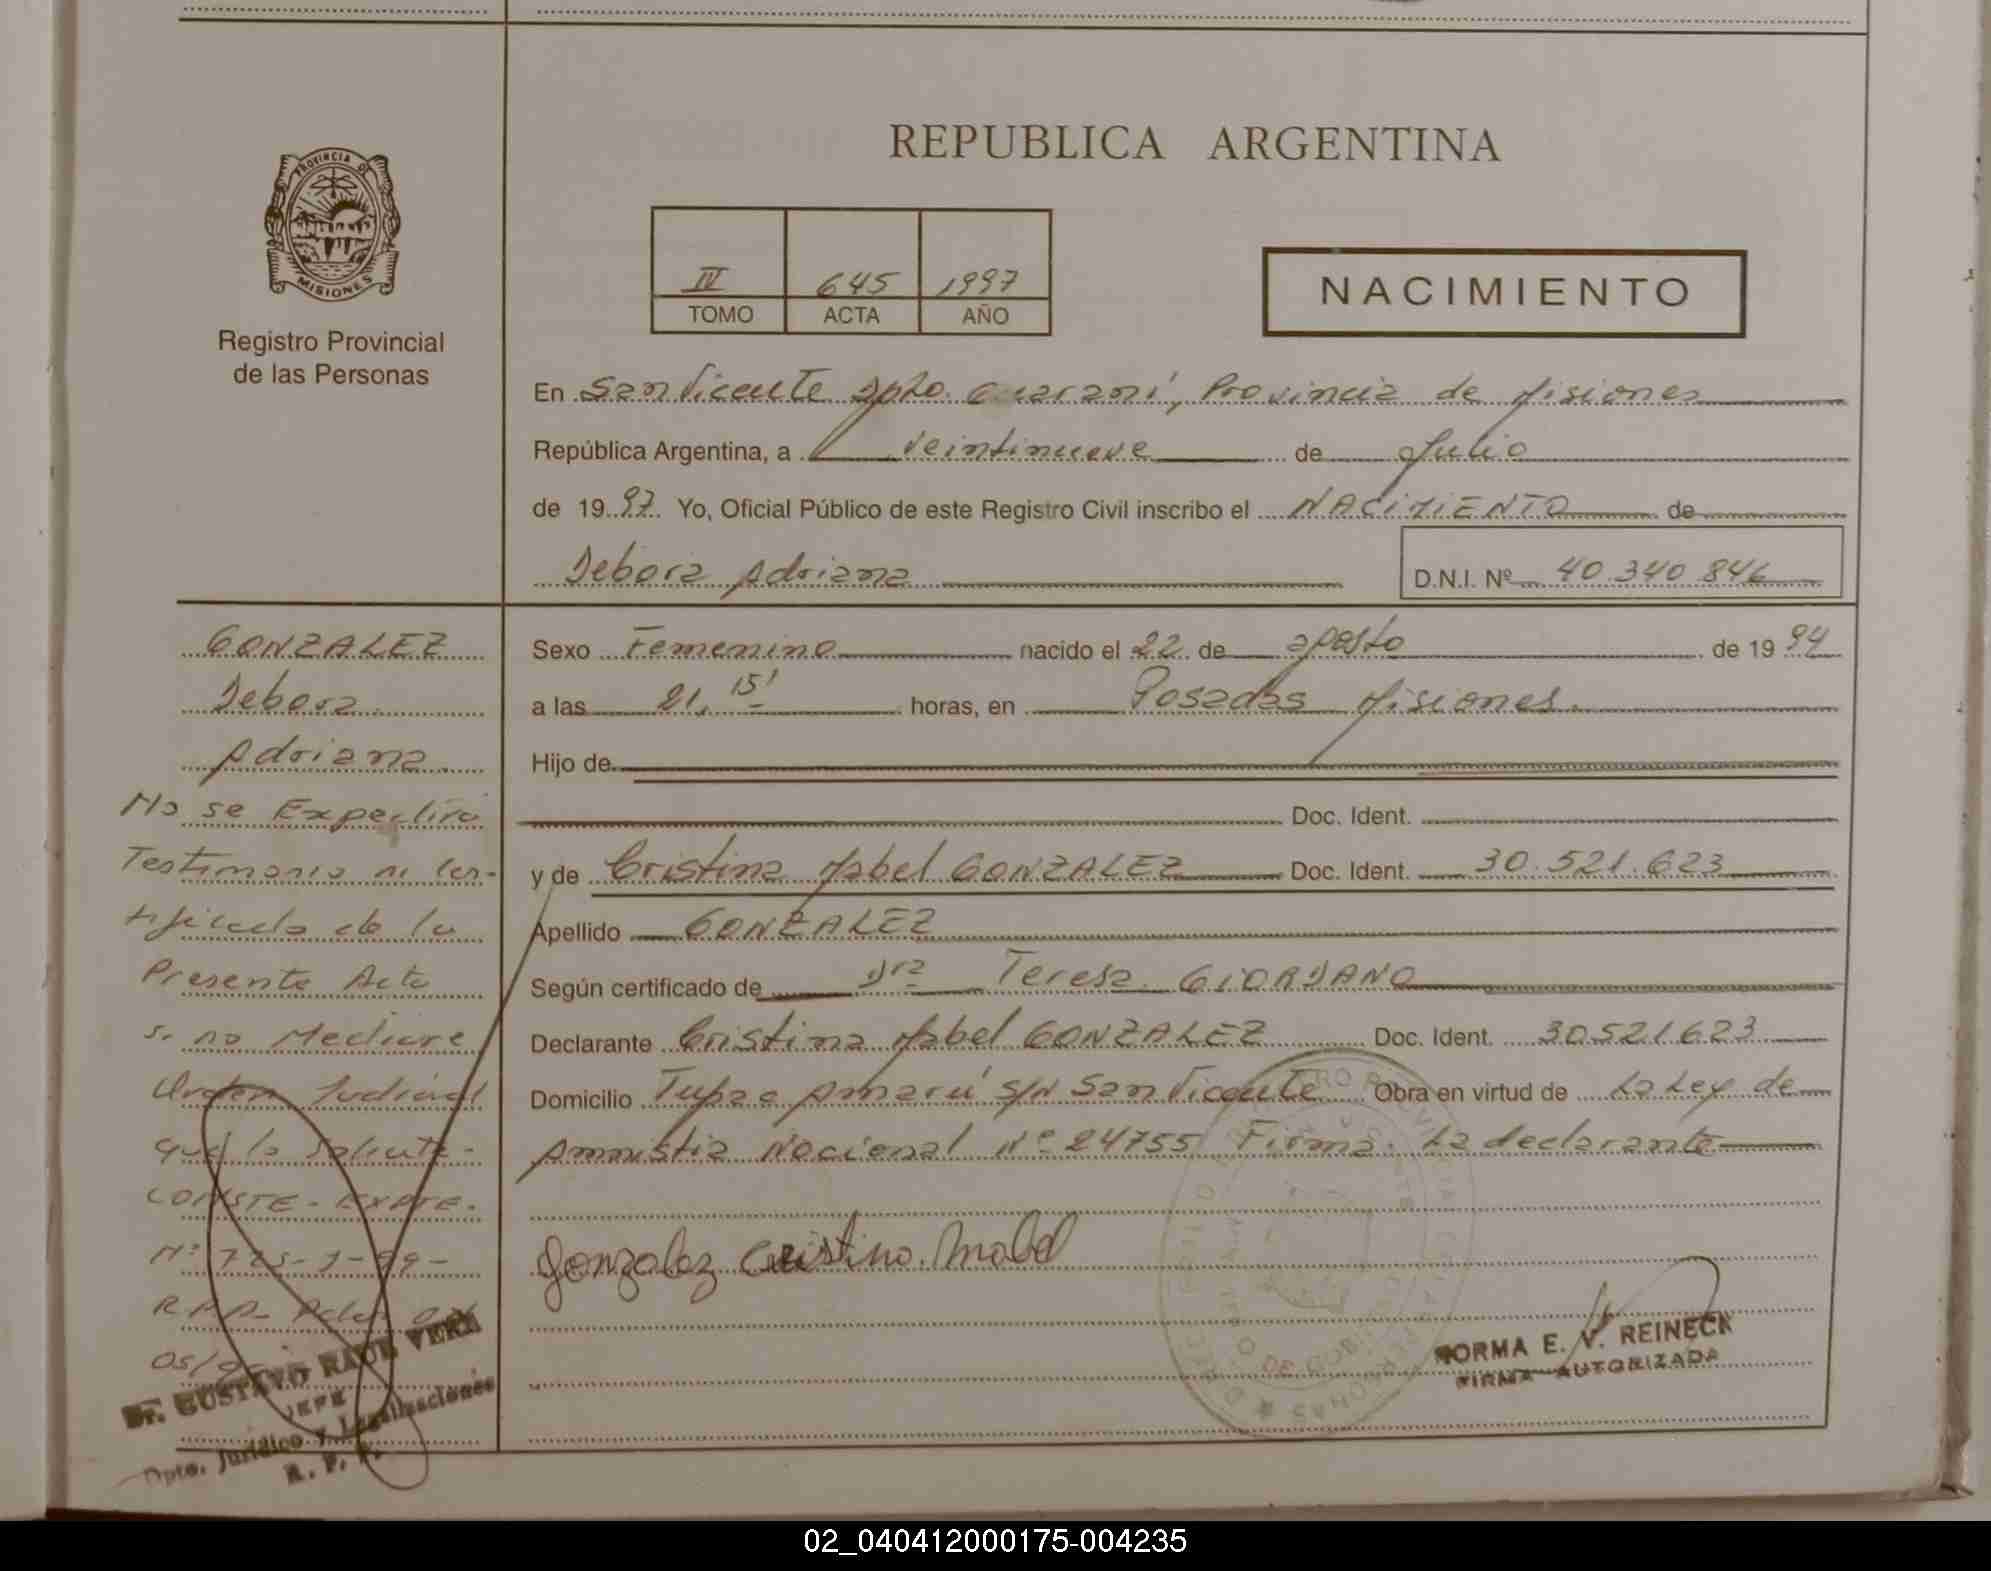 REPUBLICA ARGENTINA
PROVINCIA DE
MISIONES
Registro Provincial
de las Personas
IV 645 1997
TOMO ACTA AÑO
NACIMIENTO
En San Vicente Dpto. Guaraní, Provincia de Misiones
República Argentina, a veintinueve de Julio
de 1997 Yo, Oficial Público de este Registro Civil inscribo el NACIMIENTO de
Debora Adriana D.N.I. Nº 40.340.846
GONZALEZ
Debora
Adriana
No se Expedira
Testimonio ni Cer-
tificado de la
Presente Acta
si no Mediare
Orden Judicial
que lo Solicite-
CONSTE - EXPTE.
Nº 725-J-99-
R.P.P.
05/
Dr. GUSTAVO RAUL VERA
JEFE
Dpto. Jurídico y Legalizaciones
R. P. P.
Sexo Femenino nacido el 22 de agosto de 1994
a las 21,15' horas, en Posadas Misiones.
Hijo de
Doc. Ident.
y de Cristina Mabel GONZALEZ Doc. Ident. 30.521.623
Apellido GONZALEZ
Según certificado de Dra Teresa GIORDANO
Declarante Cristina Mabel GONZALEZ Doc. Ident. 30521623
Domicilio Tupac Amarú S/N San Vicente Obra en virtud de La Ley de
Amnistia Nacional Nº 24755 Firma. La declarante
Gonzalez Cristina Mabel
NORMA E. V. REINECK
FIRMA AUTORIZADA
02_040412000175-004235